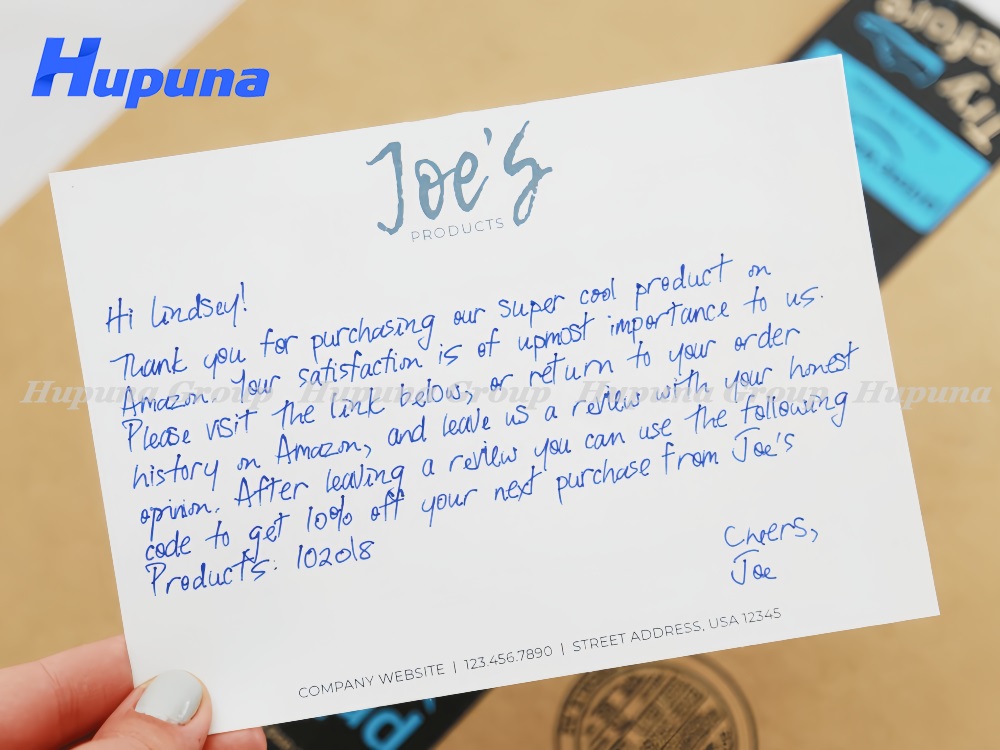 Hupuna
Try
Before
Joe's
PRODUCTS
Hi Lindsey!
Thank you for purchasing our super cool product on
Amazon. Your satisfaction is of upmost importance to us.
Please visit the link below, or return to your order
history on Amazon, and leave us a review with your honest
opinion. After leaving a review you can use the following
code to get 10% off your next purchase from Joe's
Products: 102018
Cheers,
Joe
COMPANY WEBSITE | 123.456.7890 | STREET ADDRESS, USA 12345
Hupuna Group Hupuna Group Hupuna Group Hupuna